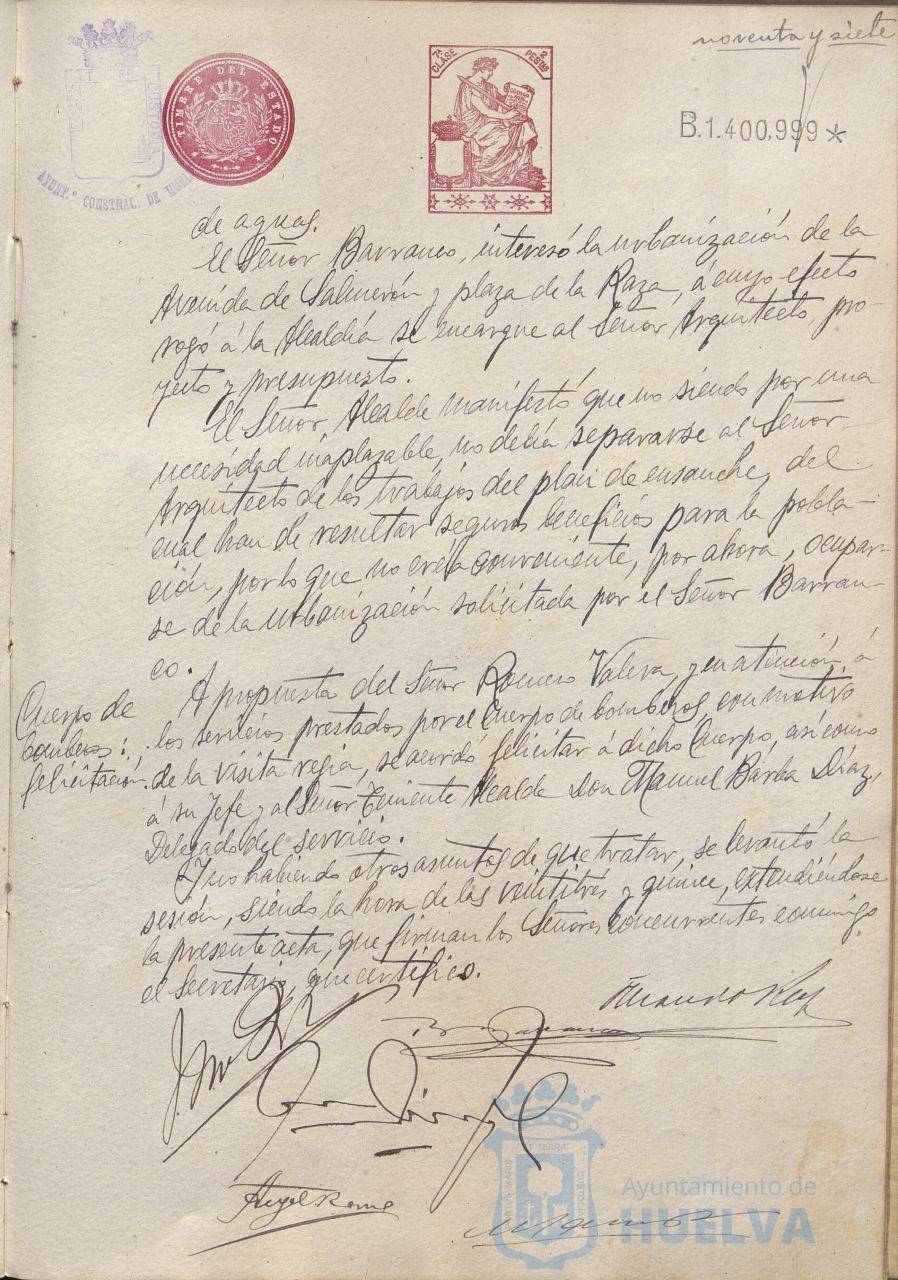 noventa y siete
TIMBRE DEL ESTADO
7ª CLASE
2 PESTAS
B.1.400,999 *
AYUNT.º CONSTNAL. DE HUELVA
de aguas.
El Señor Barranco, interesó la urbanización de la
Avenida de Salmerón y plaza de la Raza, á cuyo efecto
rogó á la Alcaldía se encargue al Señor Arquitecto, pro-
yecto y presupuesto.
El Señor Alcalde manifestó que no siendo por una
necesidad inaplazable, no debía separarse al Señor
Arquitecto de los trabajos del plan de ensanche, del
cual han de resultar seguros beneficios para la pobla-
ción, por lo que no creía conveniente, por ahora, ocupar-
se de la urbanización solicitada por el Señor Barran-
co.
Cuerpo de
bomberos:
felicitación.
A propuesta del Señor Romero Valera y en atención á
los servicios prestados por el Cuerpo de bomberos, con motivo
de la visita regia, se acordó felicitar á dicho Cuerpo, así como
á su Jefe y al Señor Teniente Alcalde Don Manuel Barba Díaz,
Delegado del servicio.
Y no habiendo otros asuntos de que tratar, se levantó la
sesión, siendo la hora de las veintitrés y quince, extendiéndose
la presente acta, que firman los Señores Concurrentes conmigo
el Secretario, que certifico.
Ayuntamiento de
HUELVA